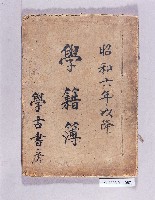 昭和六年以降
學籍簿
學古書房